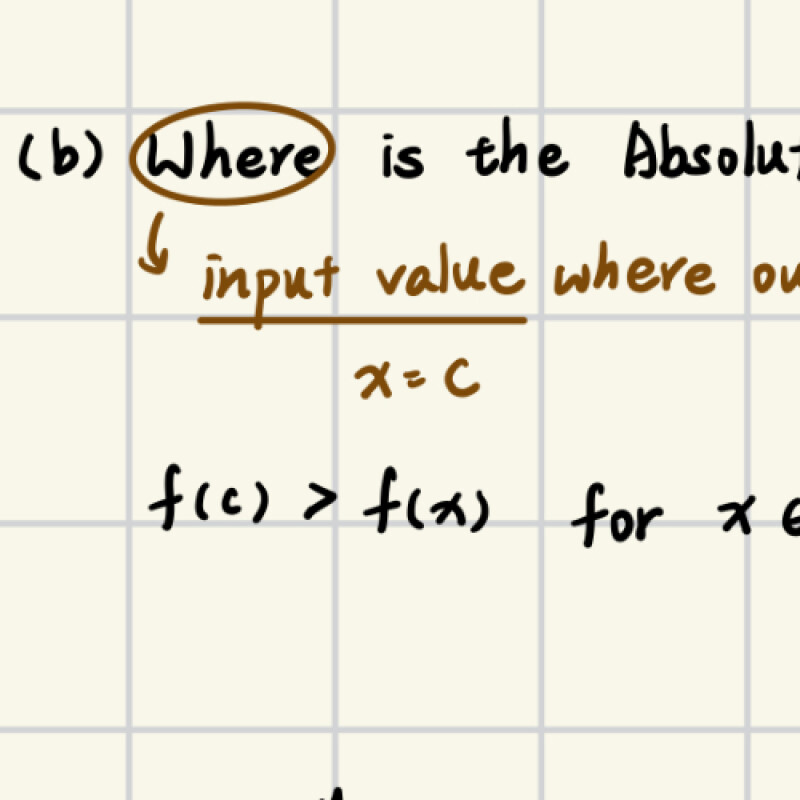 (b) Where is the Absolut
input value where ou
x = c
f(c) > f(x) for x ∈